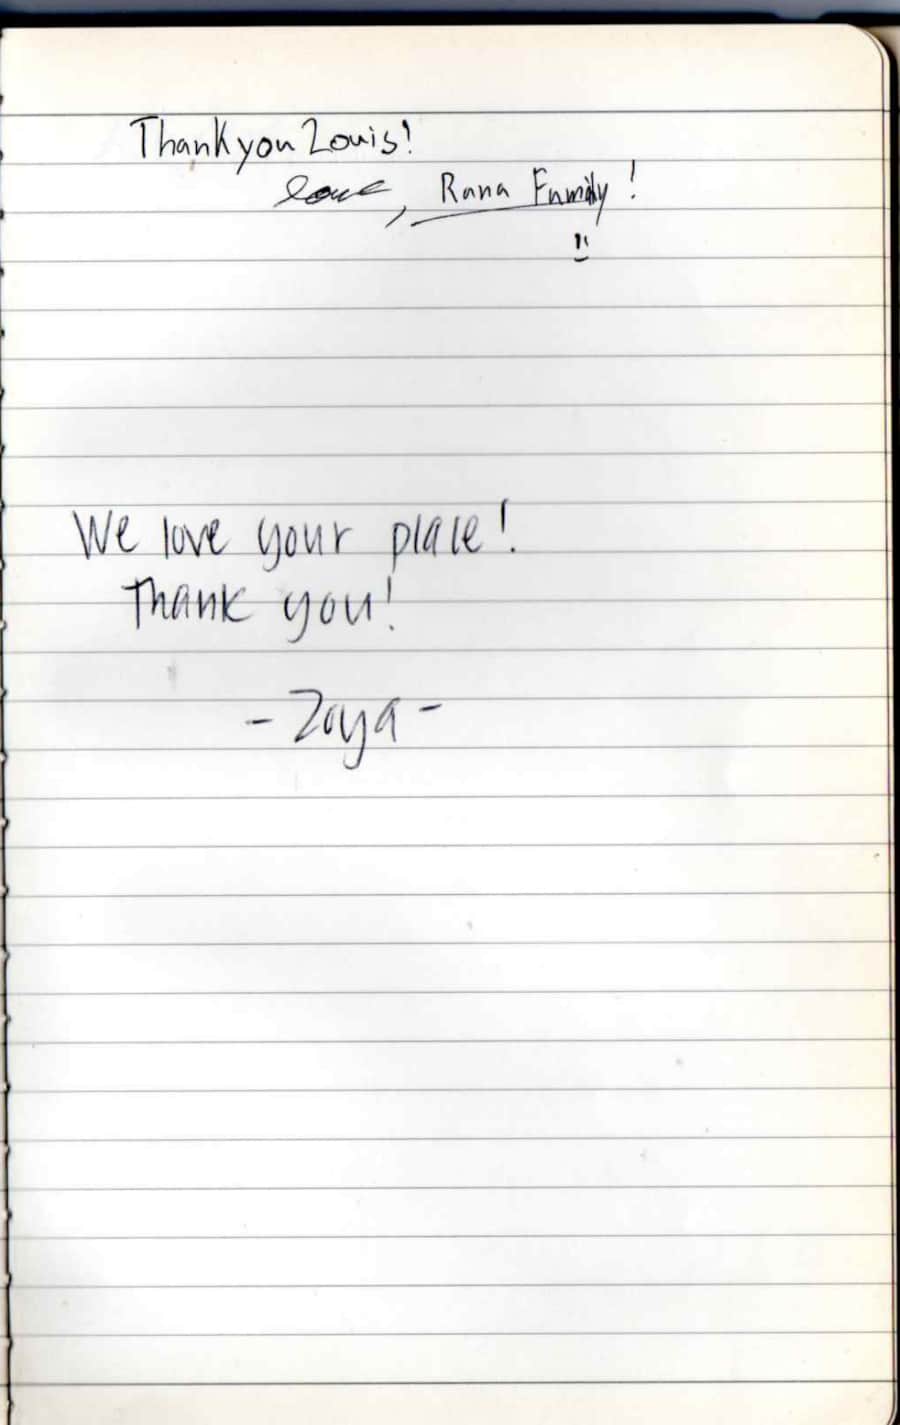 Thank you Louis!
love, Rana Family!
We love your place!
Thank you!
- Zoya -